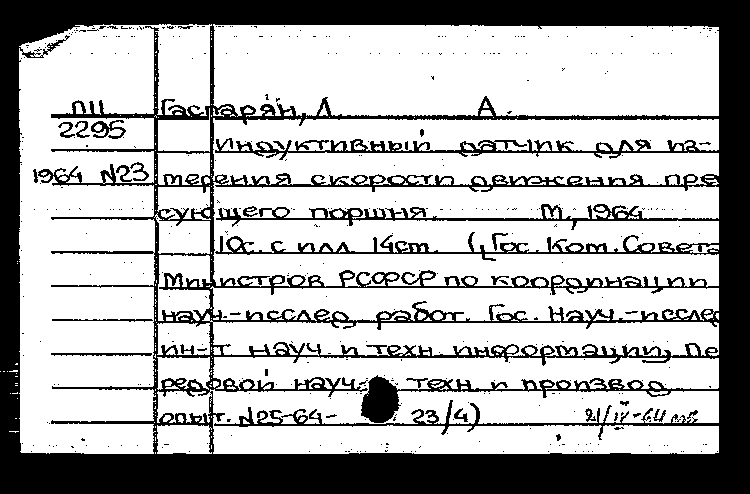 ПII Гаспарян, Л. А.
2295
Индуктивный датчик для из-
1964 N23 мерения скорости движения прес
сующего поршня. М, 1964
10с. с илл 14см. (Гос. Ком. Совета
Министров РСФСР по координации
науч.-исслед работ. Гос. Науч.-исслед
ин-т науч и техн. информации, Пе
редовой науч- техн. и производ
опыт. N25-64- 23/4)
21/IV-64